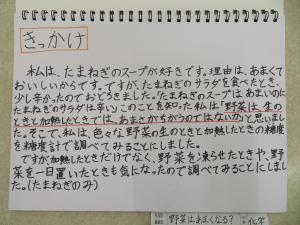 きっかけ
私は、たまねぎのスープが好きです。理由は、あまくて
おいしいからです。ですが、たまねぎのサラダを食べたとき、
少し辛かったのでおどろきました。「たまねぎのスープはあまいのに
たまねぎのサラダは辛い」このことを知った私は「野菜は、生の
ときと加熱したときでは、あまさがちがうのではないか」と思いまし
た。そこで、私は、色々な野菜の生のときと加熱したときの糖度
を糖度計で調べてみることにしました。
ですが加熱したときだけでなく、野菜を凍らせたときや、野
菜を一日置いたときも気になったので調べてみることにしまし
た。(たまねぎのみ)
野菜はあまくなる?
化学